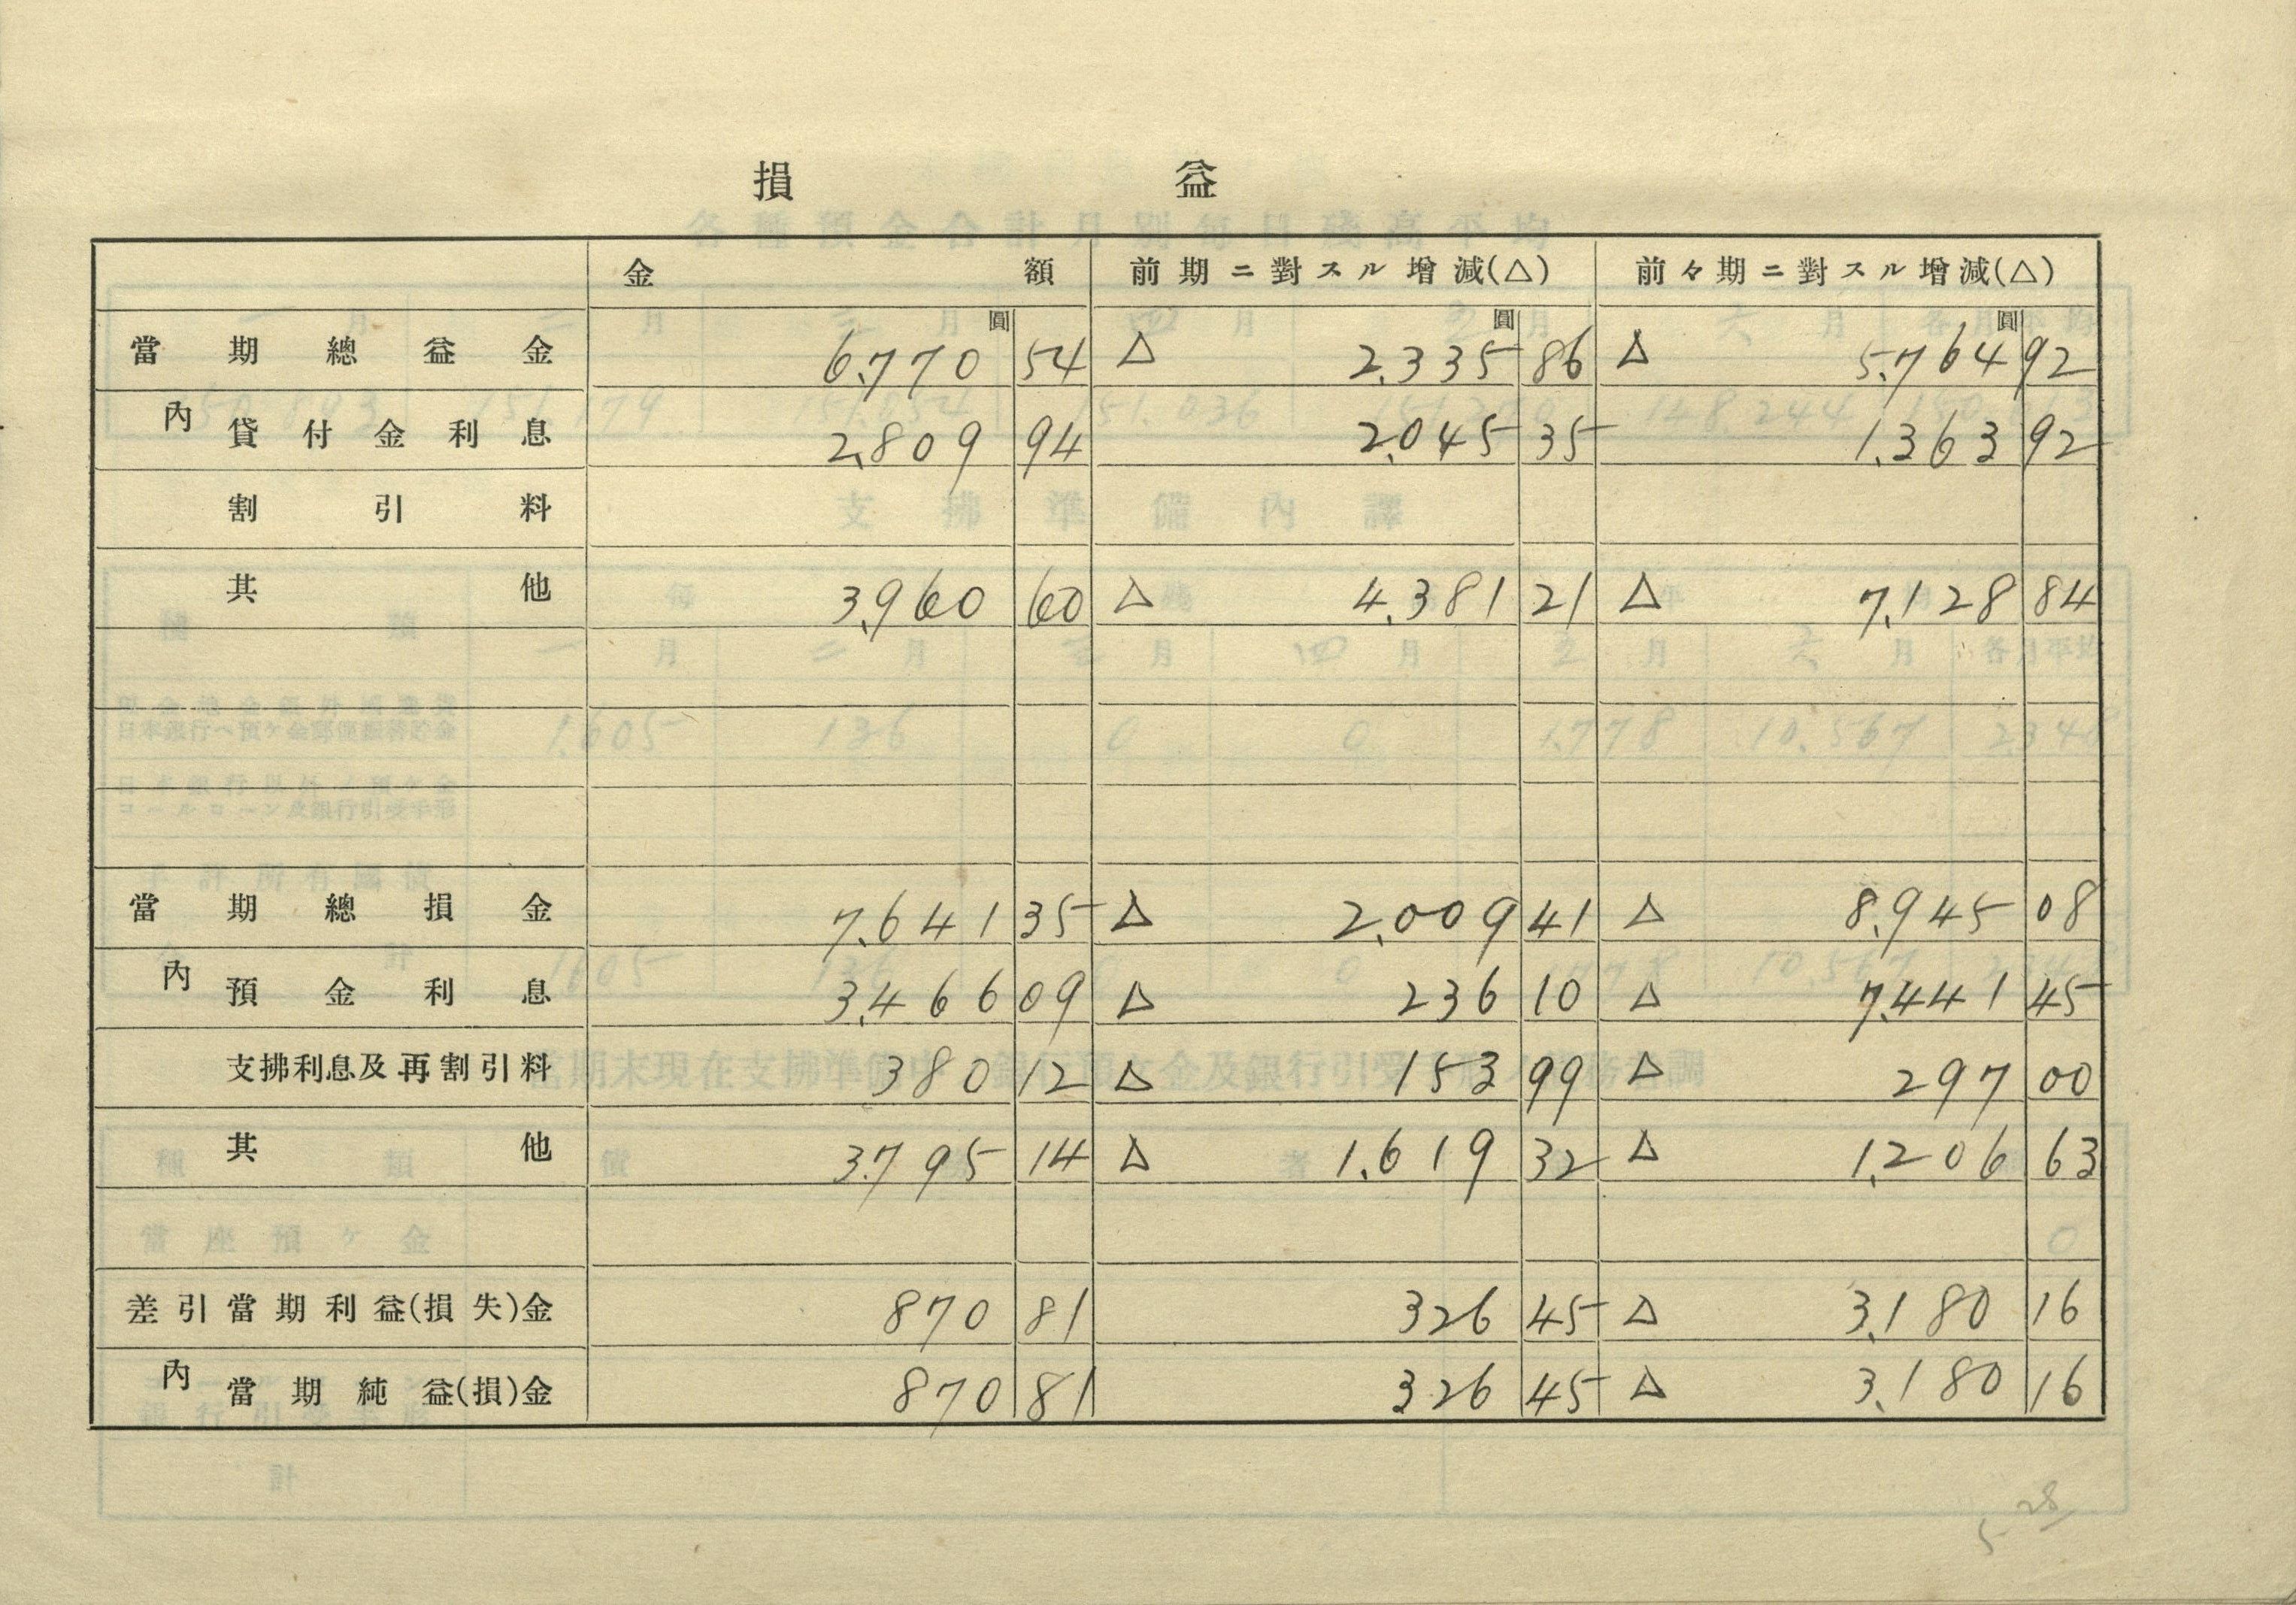 損 益
金 額 前期ニ對スル增減(△) 前々期ニ對スル增減(△)
當期總益金 6,770圓54 △ 2,335圓86 △ 5,764圓92
內 貸付金利息 2,809 94 2,045 35 1,363 92
割引料
其他 3,960 60 △ 4,381 21 △ 7,128 84
當期總損金 7,641 35 △ 2,009 41 △ 8,945 08
內 預金利息 3,466 09 △ 236 10 △ 7,441 45
支拂利息及再割引料 380 12 △ 153 99 △ 297 00
其他 3,795 14 △ 1,619 32 △ 1,206 63
差引當期利益(損失)金 870 81 326 45 △ 3,180 16
內 當期純益(損)金 870 81 326 45 △ 3,180 16
28
5